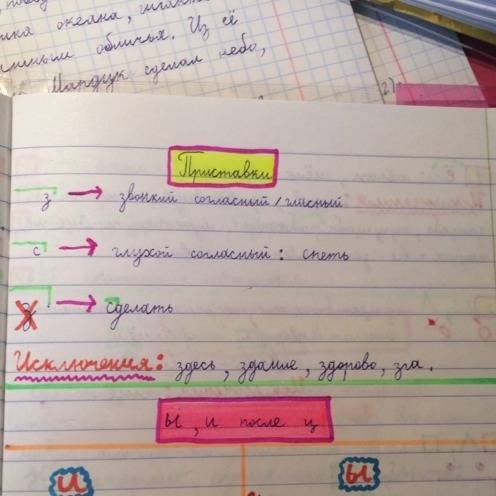 ика океана,
обличья. Из её
Мардук сделал небо,
2)
Приставки
з → звонкий согласный/гласный
с → глухой согласный: спеть
з → сделать
Исключения: здесь, здание, здорово, зга.
Ы, и после ц
и ы